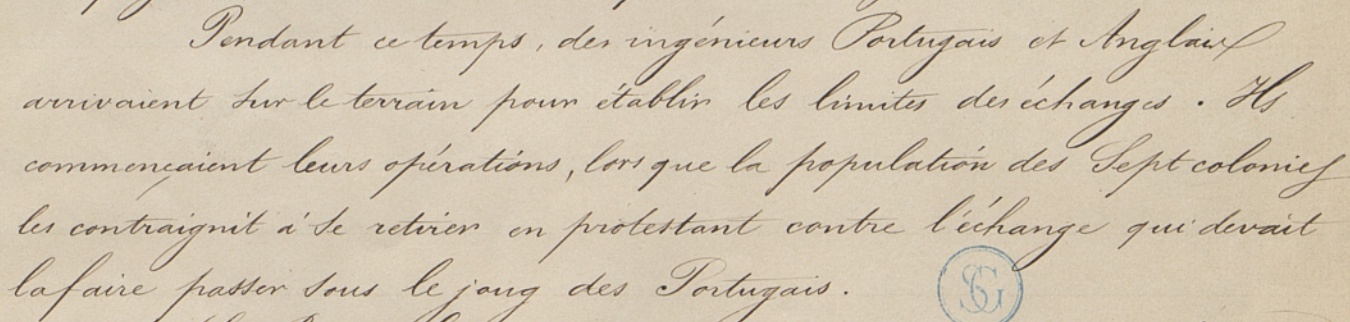 Pendant ce temps, des ingénieurs Portugais et Anglais
arrivaient sur le terrain pour établir les limites des échanges. Ils
commençaient leurs opérations, lorsque la population des Sept colonies
les contraignit à se retirer en protestant contre l'échange qui devait
la faire passer sous le joug des Portugais.
SG